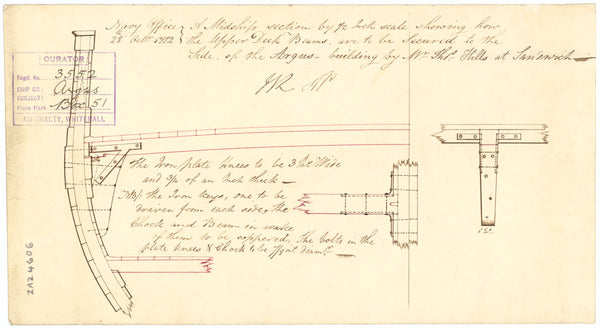 Navy Office
28 Octr. 1812
A Midship section by ½ Inch scale shewing how
the Upper Deck Beams, are to be Secured to the
Side, of the Argus - building by Mr. Thos. Hills at Sandwich -
CURATOR
Regd. No. 3552
SHIP OR SUBJECT: Argus
Press Mark Box 51
ADMIRALTY, WHITEHALL
The Iron plate knees to be 3 Int. Wide
and ¾ of an Inch thick -
The Iron Keys, one to be
driven from each side, the
Chock and Beam in wake
of them to be coppered. The bolts in the
plate knees & Chock to be
ZAZ4606